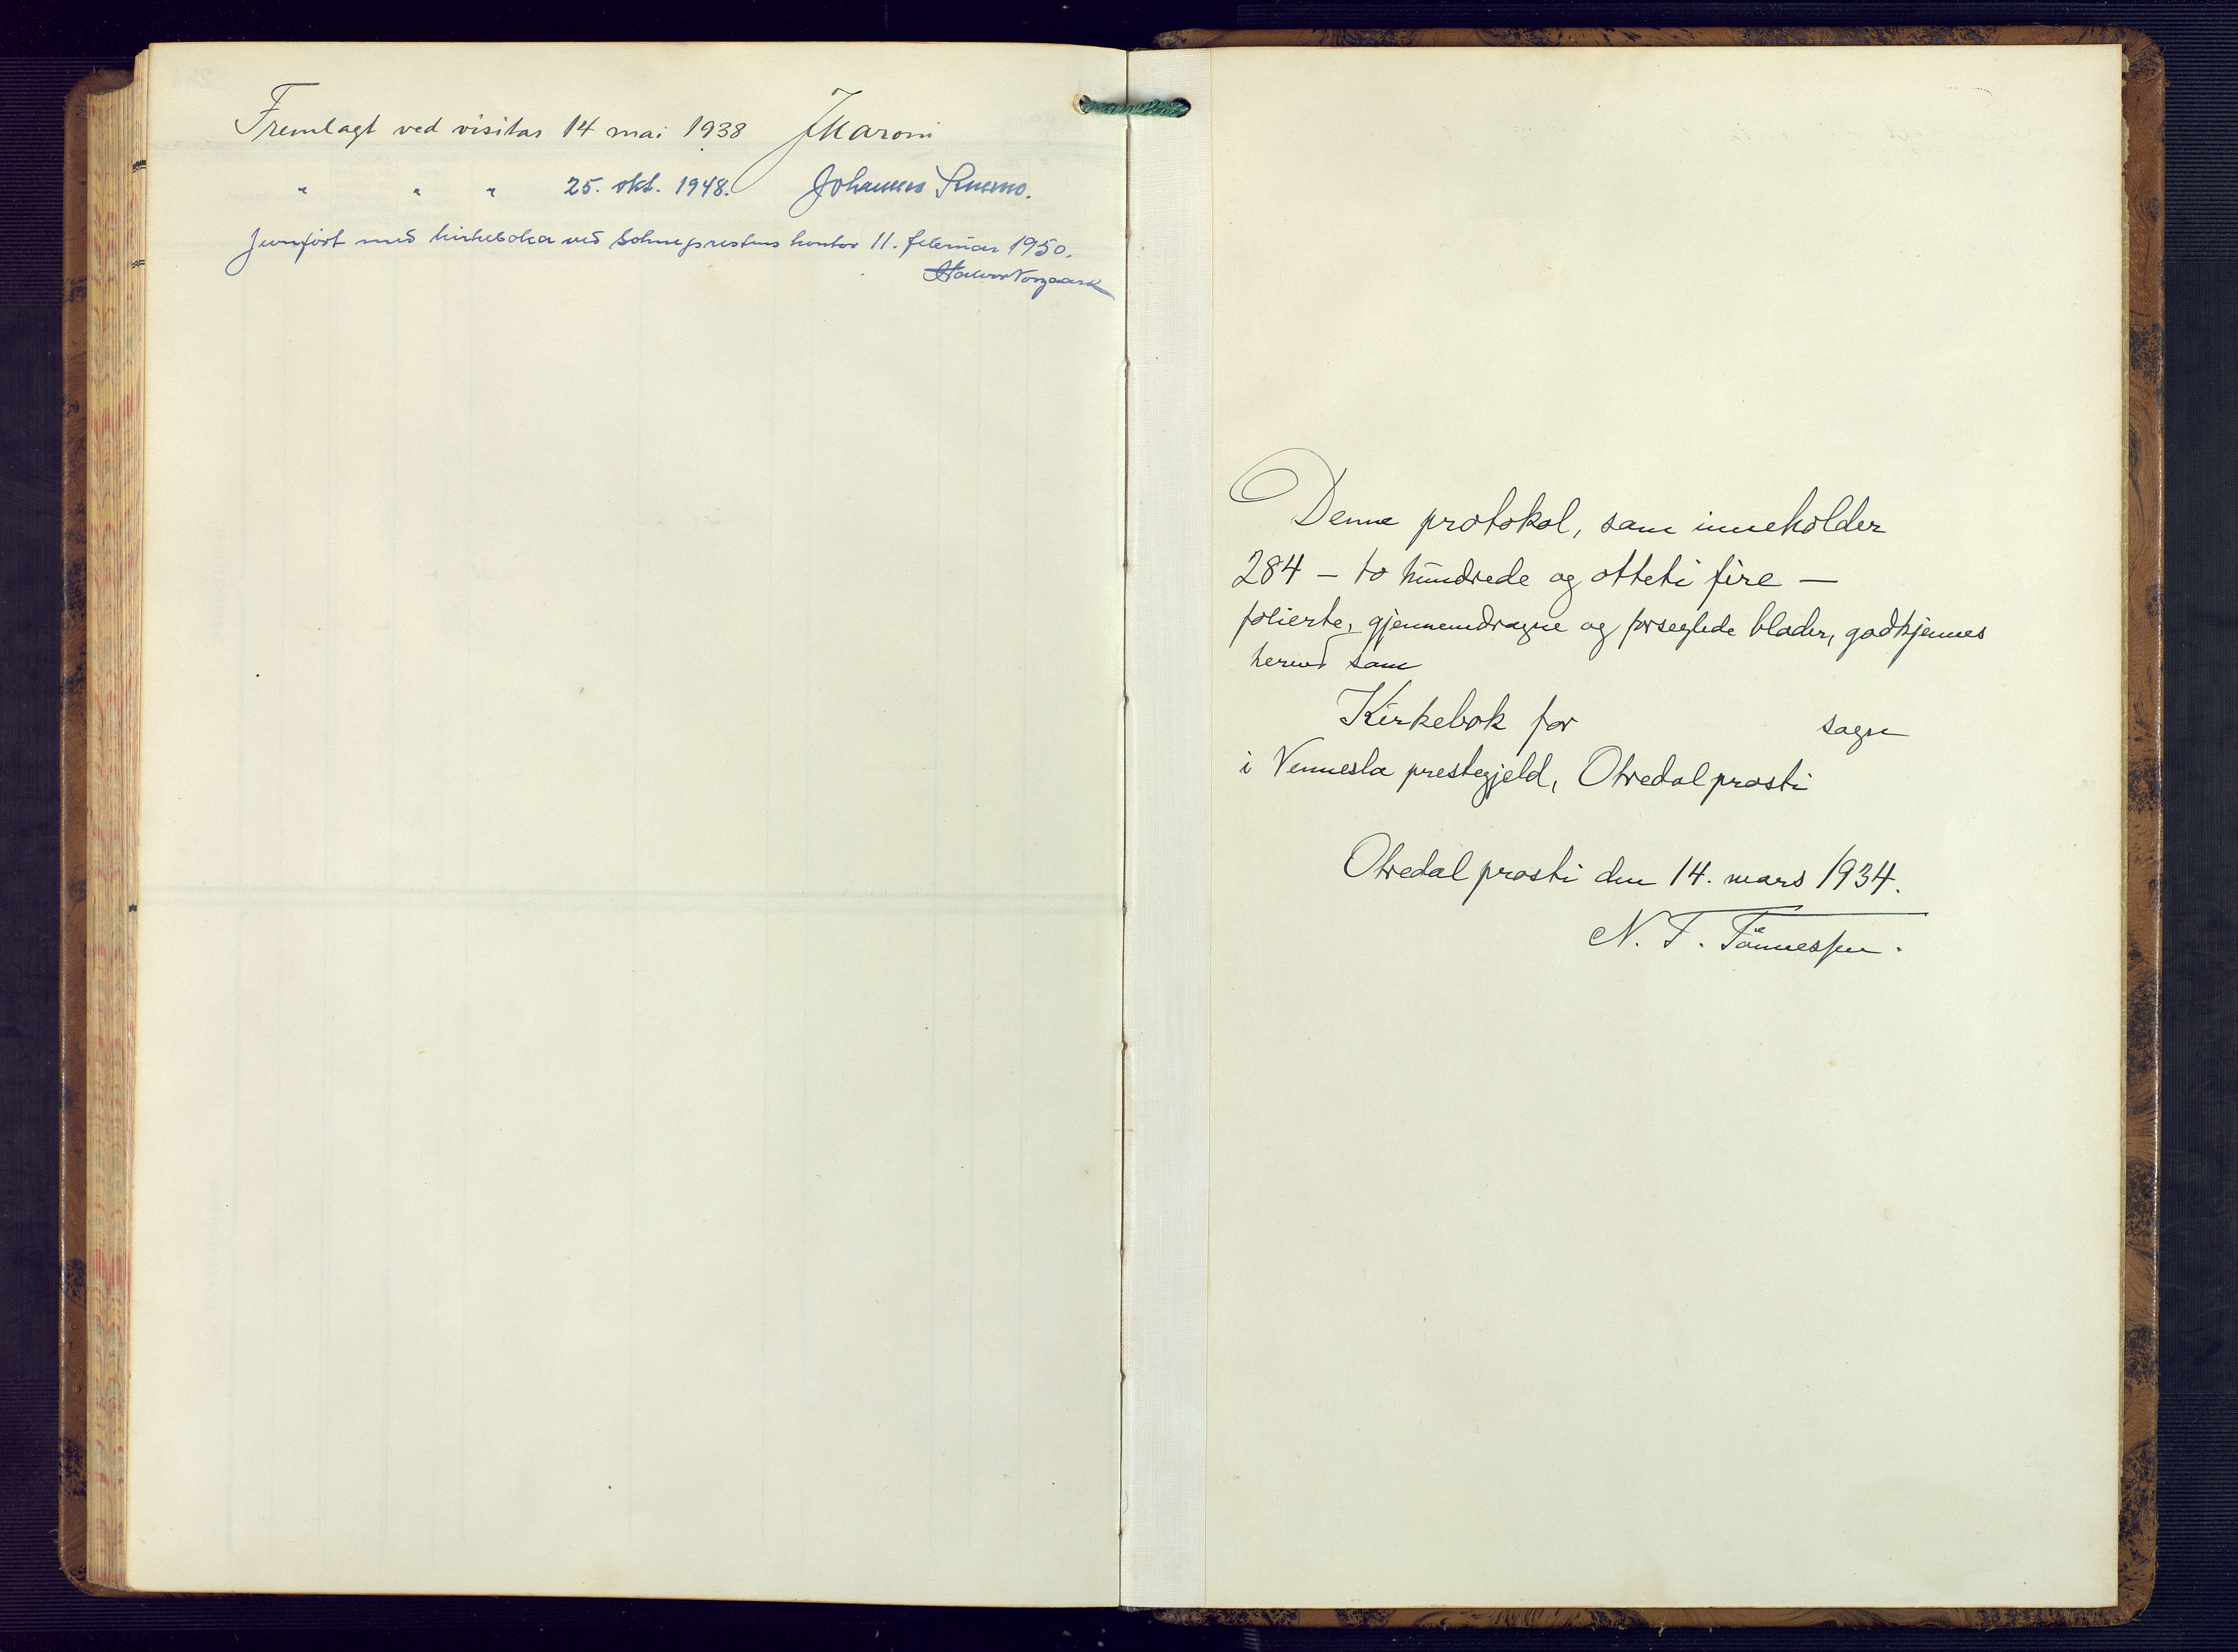 Fremlagt ved visitas 14 mai 1938 J Maroni
" " " 25. okt. 1948. Johannes Smemo.
Jevnført med kirkeboka ved Sokneprestens kontor 11. februar 1950.
Denne protokol, som inneholder
284 – to hundrede og otteti fire –
folierte, gjennemdragne og forseglede blader, godkjennes
herved som
Kirkebok for sogn
i Vennesla prestegjeld, Otredal prosti
Otredal prosti den 14. mars 1934.
N. T. Tönnessen.